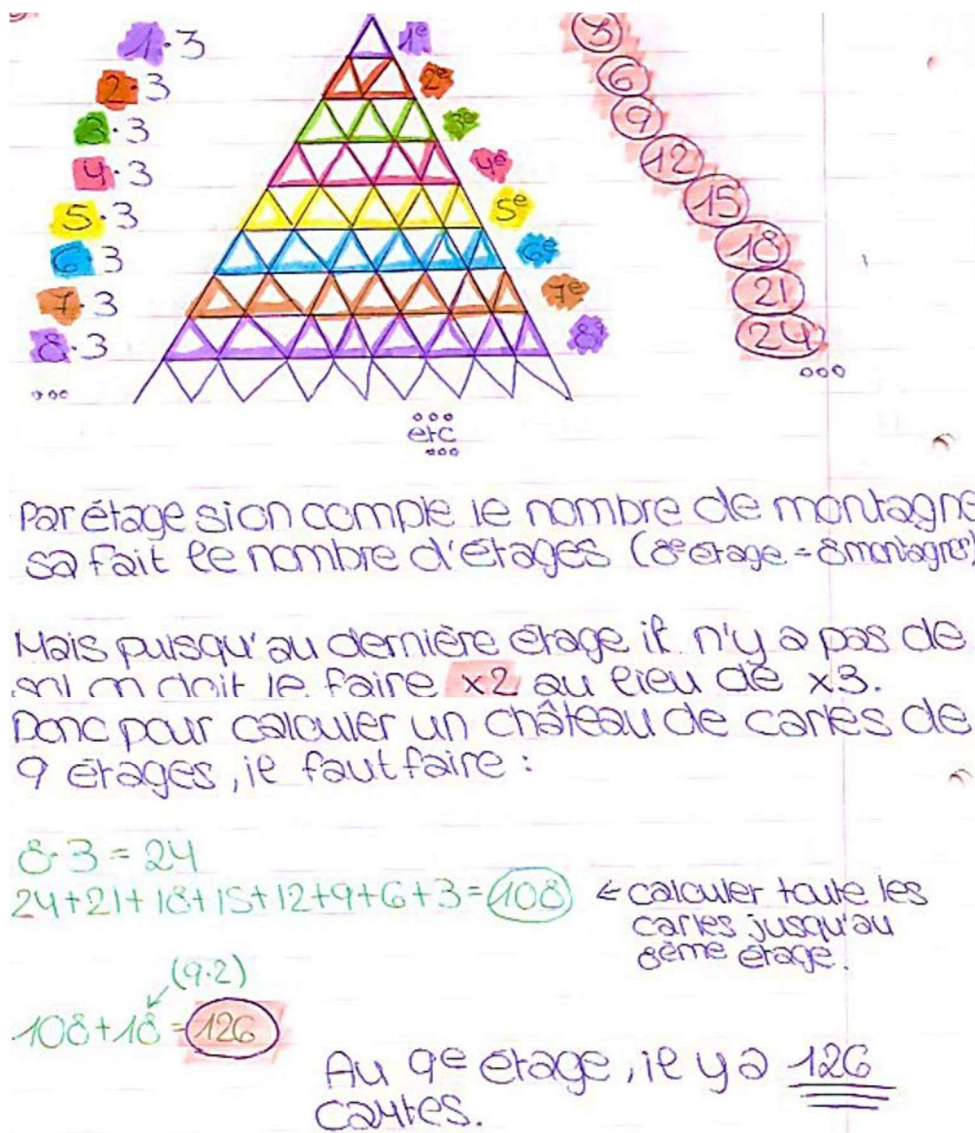 1·3 1e 3
2·3 2e 6
3·3 3e 9
4·3 4e 12
5·3 5e 15
6·3 6e 18
7·3 7e 21
8·3 8e 24
... ...
...
etc
...
Par étage si on compte le nombre de montagne
sa fait le nombre d'étages (8e étage = 8 montagnes)
Mais puisqu'au dernière étage il n'y a pas de
sol on doit le faire x2 au lieu de x3.
Donc pour calculer un château de cartes de
9 étages, il faut faire :
8·3 = 24
24+21+18+15+12+9+6+3=108 ← calculer toute les
cartes jusqu'au
8ème étage.
(9·2)
108+18=126
Au 9e étage, il y a 126
cartes.